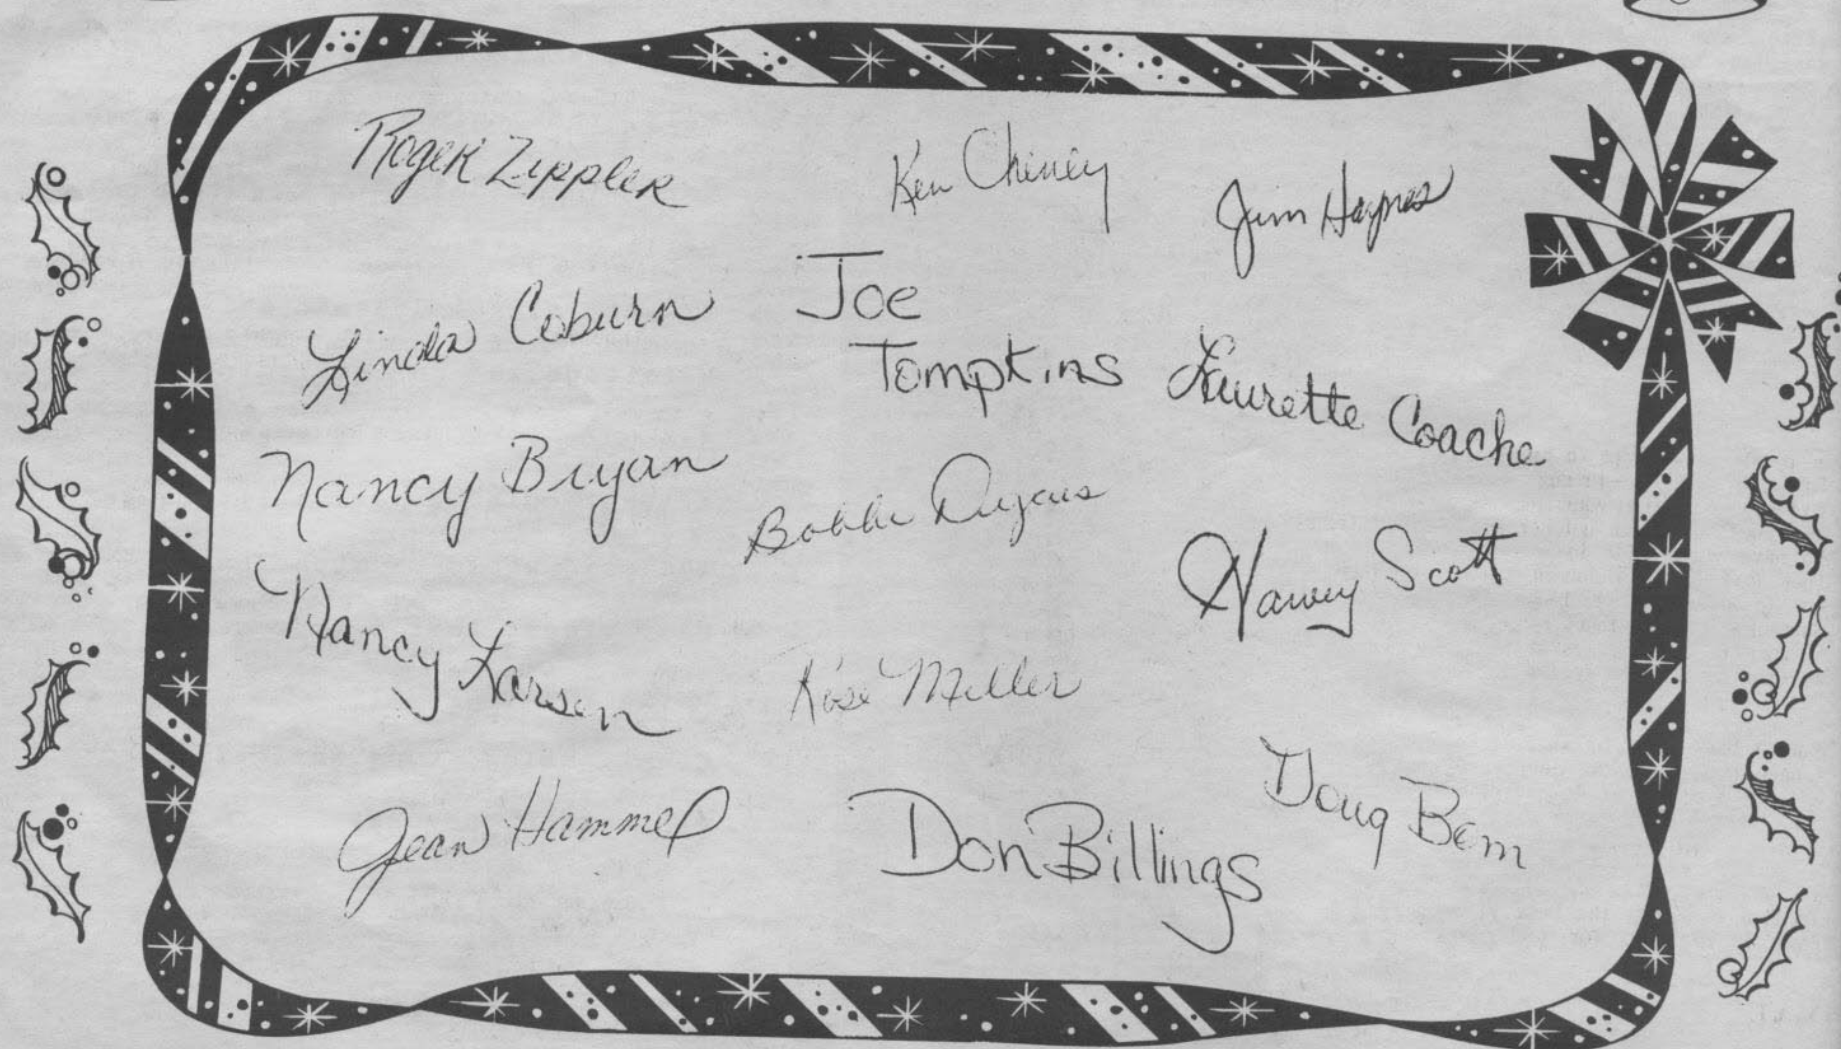 Roger Zippler
Ken Cheney
Jim Haynes
Linda Coburn
Joe
Tompkins
Laurette Coache
Nancy Bryan
Bobbie Dycus
Harvey Scott
Nancy Larsen
Rose Miller
Jean Hammel
Don Billings
Doug Bem